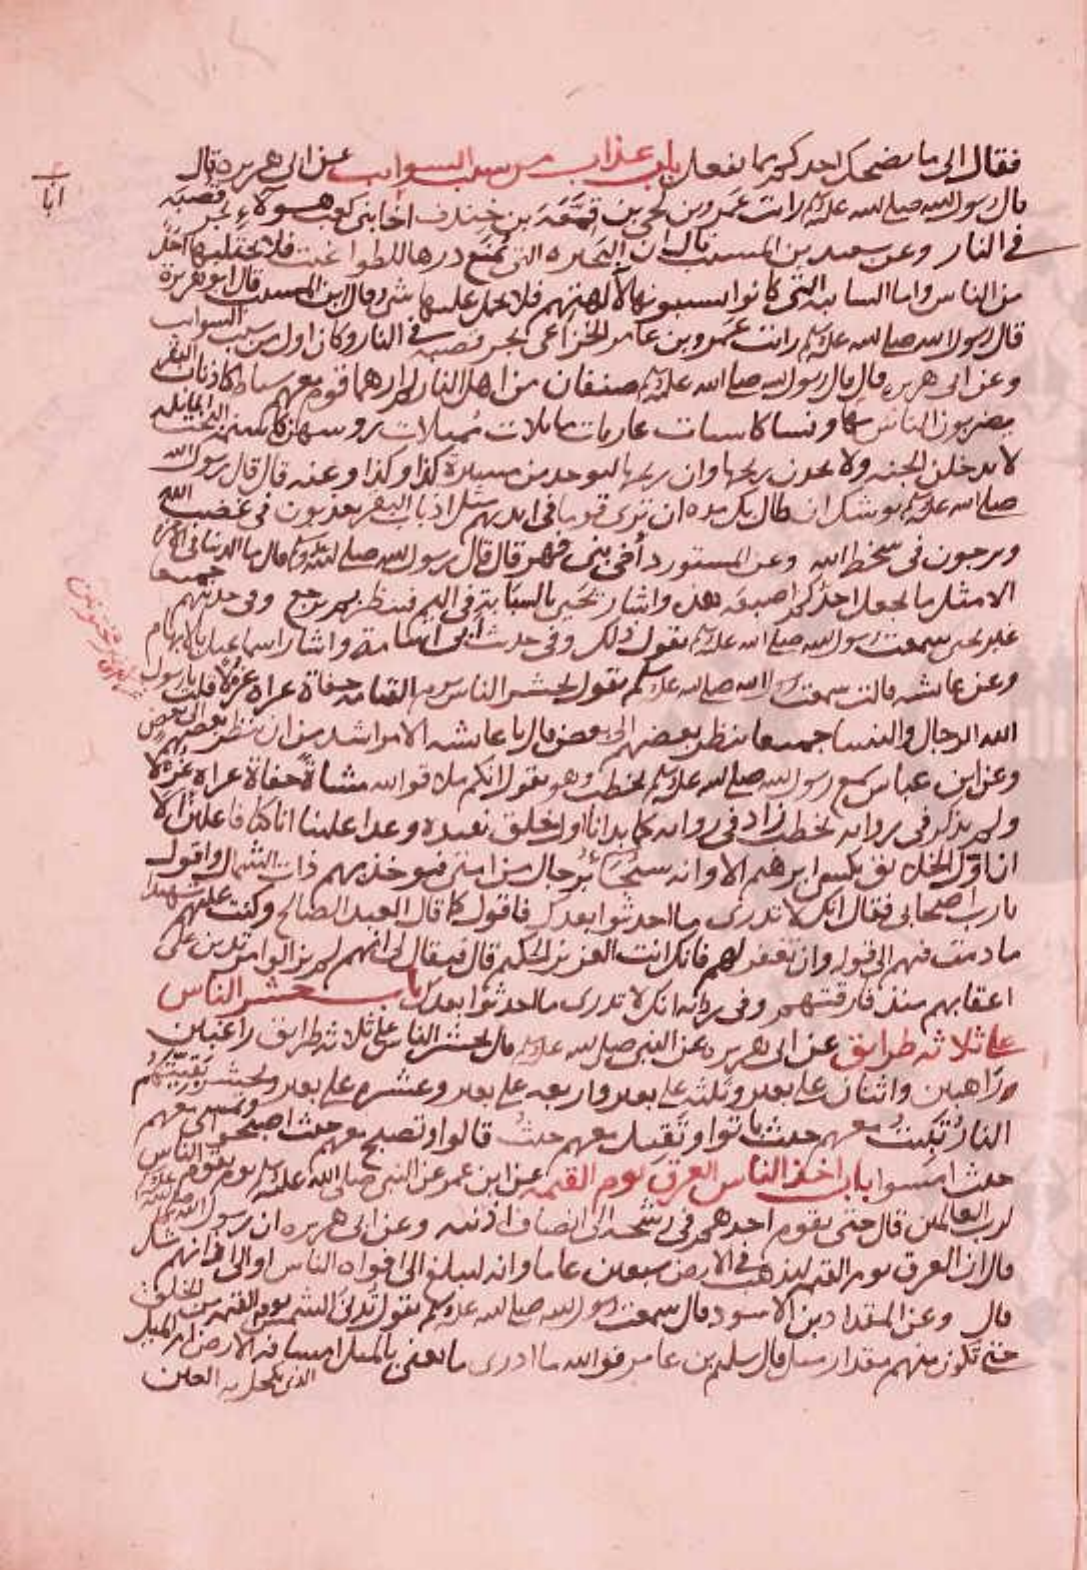 فقال الى ما يضحك احدكم مما يفعل باب عذاب من سيب السوايب عن ابى هريره قال
قال رسول الله صلى الله عليه وسلم رايت عمرو بن لحي بن قمعة بن خندف اخا بنى كعب هولاء يجر قصبه
فى النار وعن سعيد بن المسيب قال ان البحيره التى يمنع درها للطواغيت فلا يحتلبها احد
من الناس واما السايبه التى كانوا يسيبونها لآلهتهم فلا يحمل عليها شى وقال ابن المسيب قال ابو هريرة
قال رسول الله صلى الله عليه وسلم رايت عمرو بن عامر الخزاعى يجر قصبه فى النار وكان اول من سيب السوايب
وعن ابى هريره قال قال رسول الله صلى الله عليه وسلم صنفان من اهل النار لم ارهما قوم معهم سياط كاذناب البقر
يضربون الناس بها ونسا كاسيات عاريات مايلات مميلات روسهن كاسنمة البخت المايله
لا يدخلن الجنه ولا يجدن ريحها وان ريحها ليوجد من مسيرة كذا وكذا وعنه قال قال رسول الله
صلى الله عليه وسلم يوشك ان طال بك مده ان ترى قوما فى ايديهم مثل اذناب البقر يغدون فى غضب الله
ويرجون فى سخط الله وعن المستورد أخى بنى فهر قال قال رسول الله صلى الله عليه وسلم قال ما الدنيا فى الآخرة
الا مثل ما يجعل احدكم اصبعه هذه واشار يحيى بالسبابة فى اليم فينظر بم يرجع وفى حديثهم جميعا
غير يحيى سمعت رسول الله صلى الله عليه وسلم يقول ذلك وفى حديث أبى اسامة واشار اسماعيل بالابهام
وعن عايشه قالت سمعت رسول الله صلى الله عليه وسلم يقول يحشر الناس يوم القيامه حفاة عراة غرلا قلت يا رسول
الله الرجال والنسا جميعا ينظر بعضهم الى بعض قال يا عايشه الامر اشد من ان ينظر بعضهم الى بعض
وعن ابن عباس سمع رسول الله صلى الله عليه وسلم يخطب وهو يقول انكم ملاقوا الله مشاةً حفاة عراة غرلا
ولم يذكر فى روايه يخطب زاد فى روايه كما بدانا اول خلق نعيده وعدا علينا انا كنا فاعلين الا
ان اول الخلايق يكسى ابرهيم الا وانه سيجاء برجال من امتى فيوخذ بهم ذات الشمال واقول
يا رب اصحابى فقال انك لا تدرى ما احدثوا بعدك فاقول كما قال العبد الصالح وكنت عليهم شهيدا
ما دمت فيهم الى قوله وان تغفر لهم فانك انت العزيز الحكيم قال فيقال لى انهم لم يزالوا مرتدين على
اعقابهم منذ فارقتهم وفى روايه انك لا تدرى ما احدثوا بعدك باب حشر الناس
على ثلاثه طرايق عن ابى هريره عن النبى صلى الله عليه وسلم قال يحشر الناس على ثلاثه طرايق راغبين
وراهبين واثنان على بعير وثلثه على بعير واربعه على بعير وعشره على بعير ويحشر بقيتهم
النار تبيت معهم حيث باتوا وتقيل معهم حيث قالوا وتصبح معهم حيث اصبحوا وتمسى معهم
حيث امسوا باب اخذ الناس العرق يوم القيمه عن ابن عمر عن النبى صلى الله عليه وسلم يوم يقوم الناس
لرب العالمين قال حتى يقوم احدهم فى رشحه الى انصاف اذنيه وعن ابى هريره ان رسول الله صلى الله عليه وسلم
قال ان العرق يوم القيمه ليذهب فى الارض سبعين عاما وانه ليبلغ الى افواه الناس او الى اذانهم شك
قال وعن المقداد بن الاسود قال سمعت رسول الله صلى الله عليه وسلم يقول تدنى الشمس يوم القيمه من الخلق
حتى تكون منهم مقدار ميل قال سليم بن عامر فوالله ما ادرى ما يعنى بالميل امسافه الارض ام الميل
الذى يكحل به العين